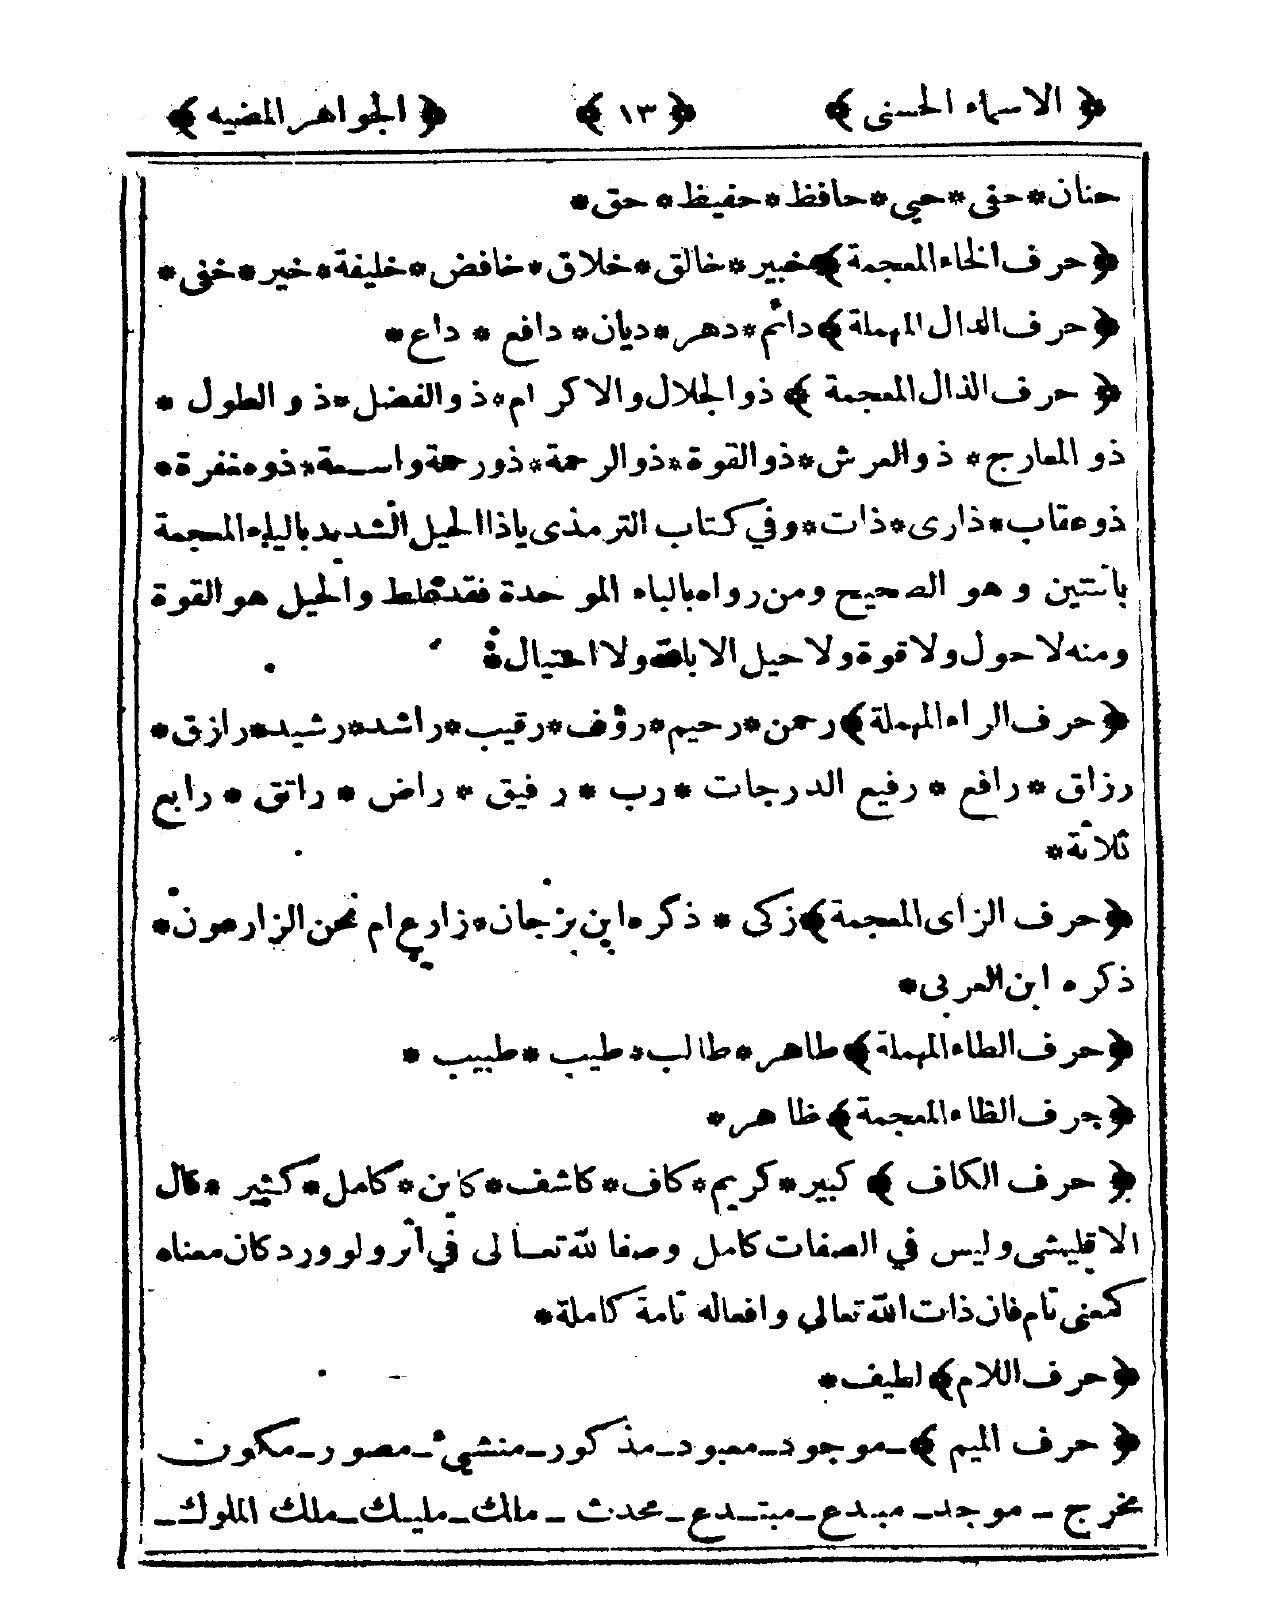 ﴿ الاسماء الحسنى ﴾ ﴿ ١٣ ﴾ ﴿ الجواهر المضيه ﴾
حنان * حفى * حيي * حافظ * حفيظ * حق *
﴿ حرف الخاء المعجمة ﴾ خبير * خالق * خلاق * خافض * خليفة * خير * خفى *
﴿ حرف الدال المهملة ﴾ دائم * دهر * ديان * دافع * داع *
﴿ حرف الذال المعجمة ﴾ ذو الجلال والاكرام * ذو الفضل * ذو الطول *
ذو المعارج * ذو العرش * ذو القوة * ذو الرحمة * ذو رحمة واسعة * ذو مغفرة *
ذو عقاب * ذارى * ذات * وفي كتاب الترمذى ياذا الحيل الشديد بالياء المعجمة
باثنتين و هو الصحيح ومن رواه بالباء الموحدة فقد غلط والحيل هو القوة
ومنه لا حول ولا قوة ولا حيل الا بالله ولا احتيال *
﴿ حرف الراء المهملة ﴾ رحمن * رحيم * رؤف * رقيب * راشد * رشيد * رازق *
رزاق * رافع * رفيع الدرجات * رب * رفيق * راض * راتق * رابع
ثلاثة *
﴿ حرف الزاى المعجمة ﴾ زكى * ذكره ابن برجان * زارع ام نحن الزارعون *
ذكره ابن العربى *
﴿ حرف الطاء المهملة ﴾ طاهر * طالب * طيب * طبيب *
﴿ حرف الظاء المعجمة ﴾ ظاهر *
﴿ حرف الكاف ﴾ كبير * كريم * كاف * كاشف * كاين * كامل * كثير * قال
الاقليشى وليس في الصفات كامل وصفا لله تعالى في أثر ولو ورد كان معناه
كمعنى تام فان ذات الله تعالى وافعاله تامة كاملة *
﴿ حرف اللام ﴾ لطيف *
﴿ حرف الميم ﴾ ـ موجود ـ معبود ـ مذكور ـ منشئ ـ مصور ـ مكون
مخرج ـ موجد ـ مبدع ـ مبتدع ـ محدث ـ مالك ـ مليك ـ ملك الملوك ـ